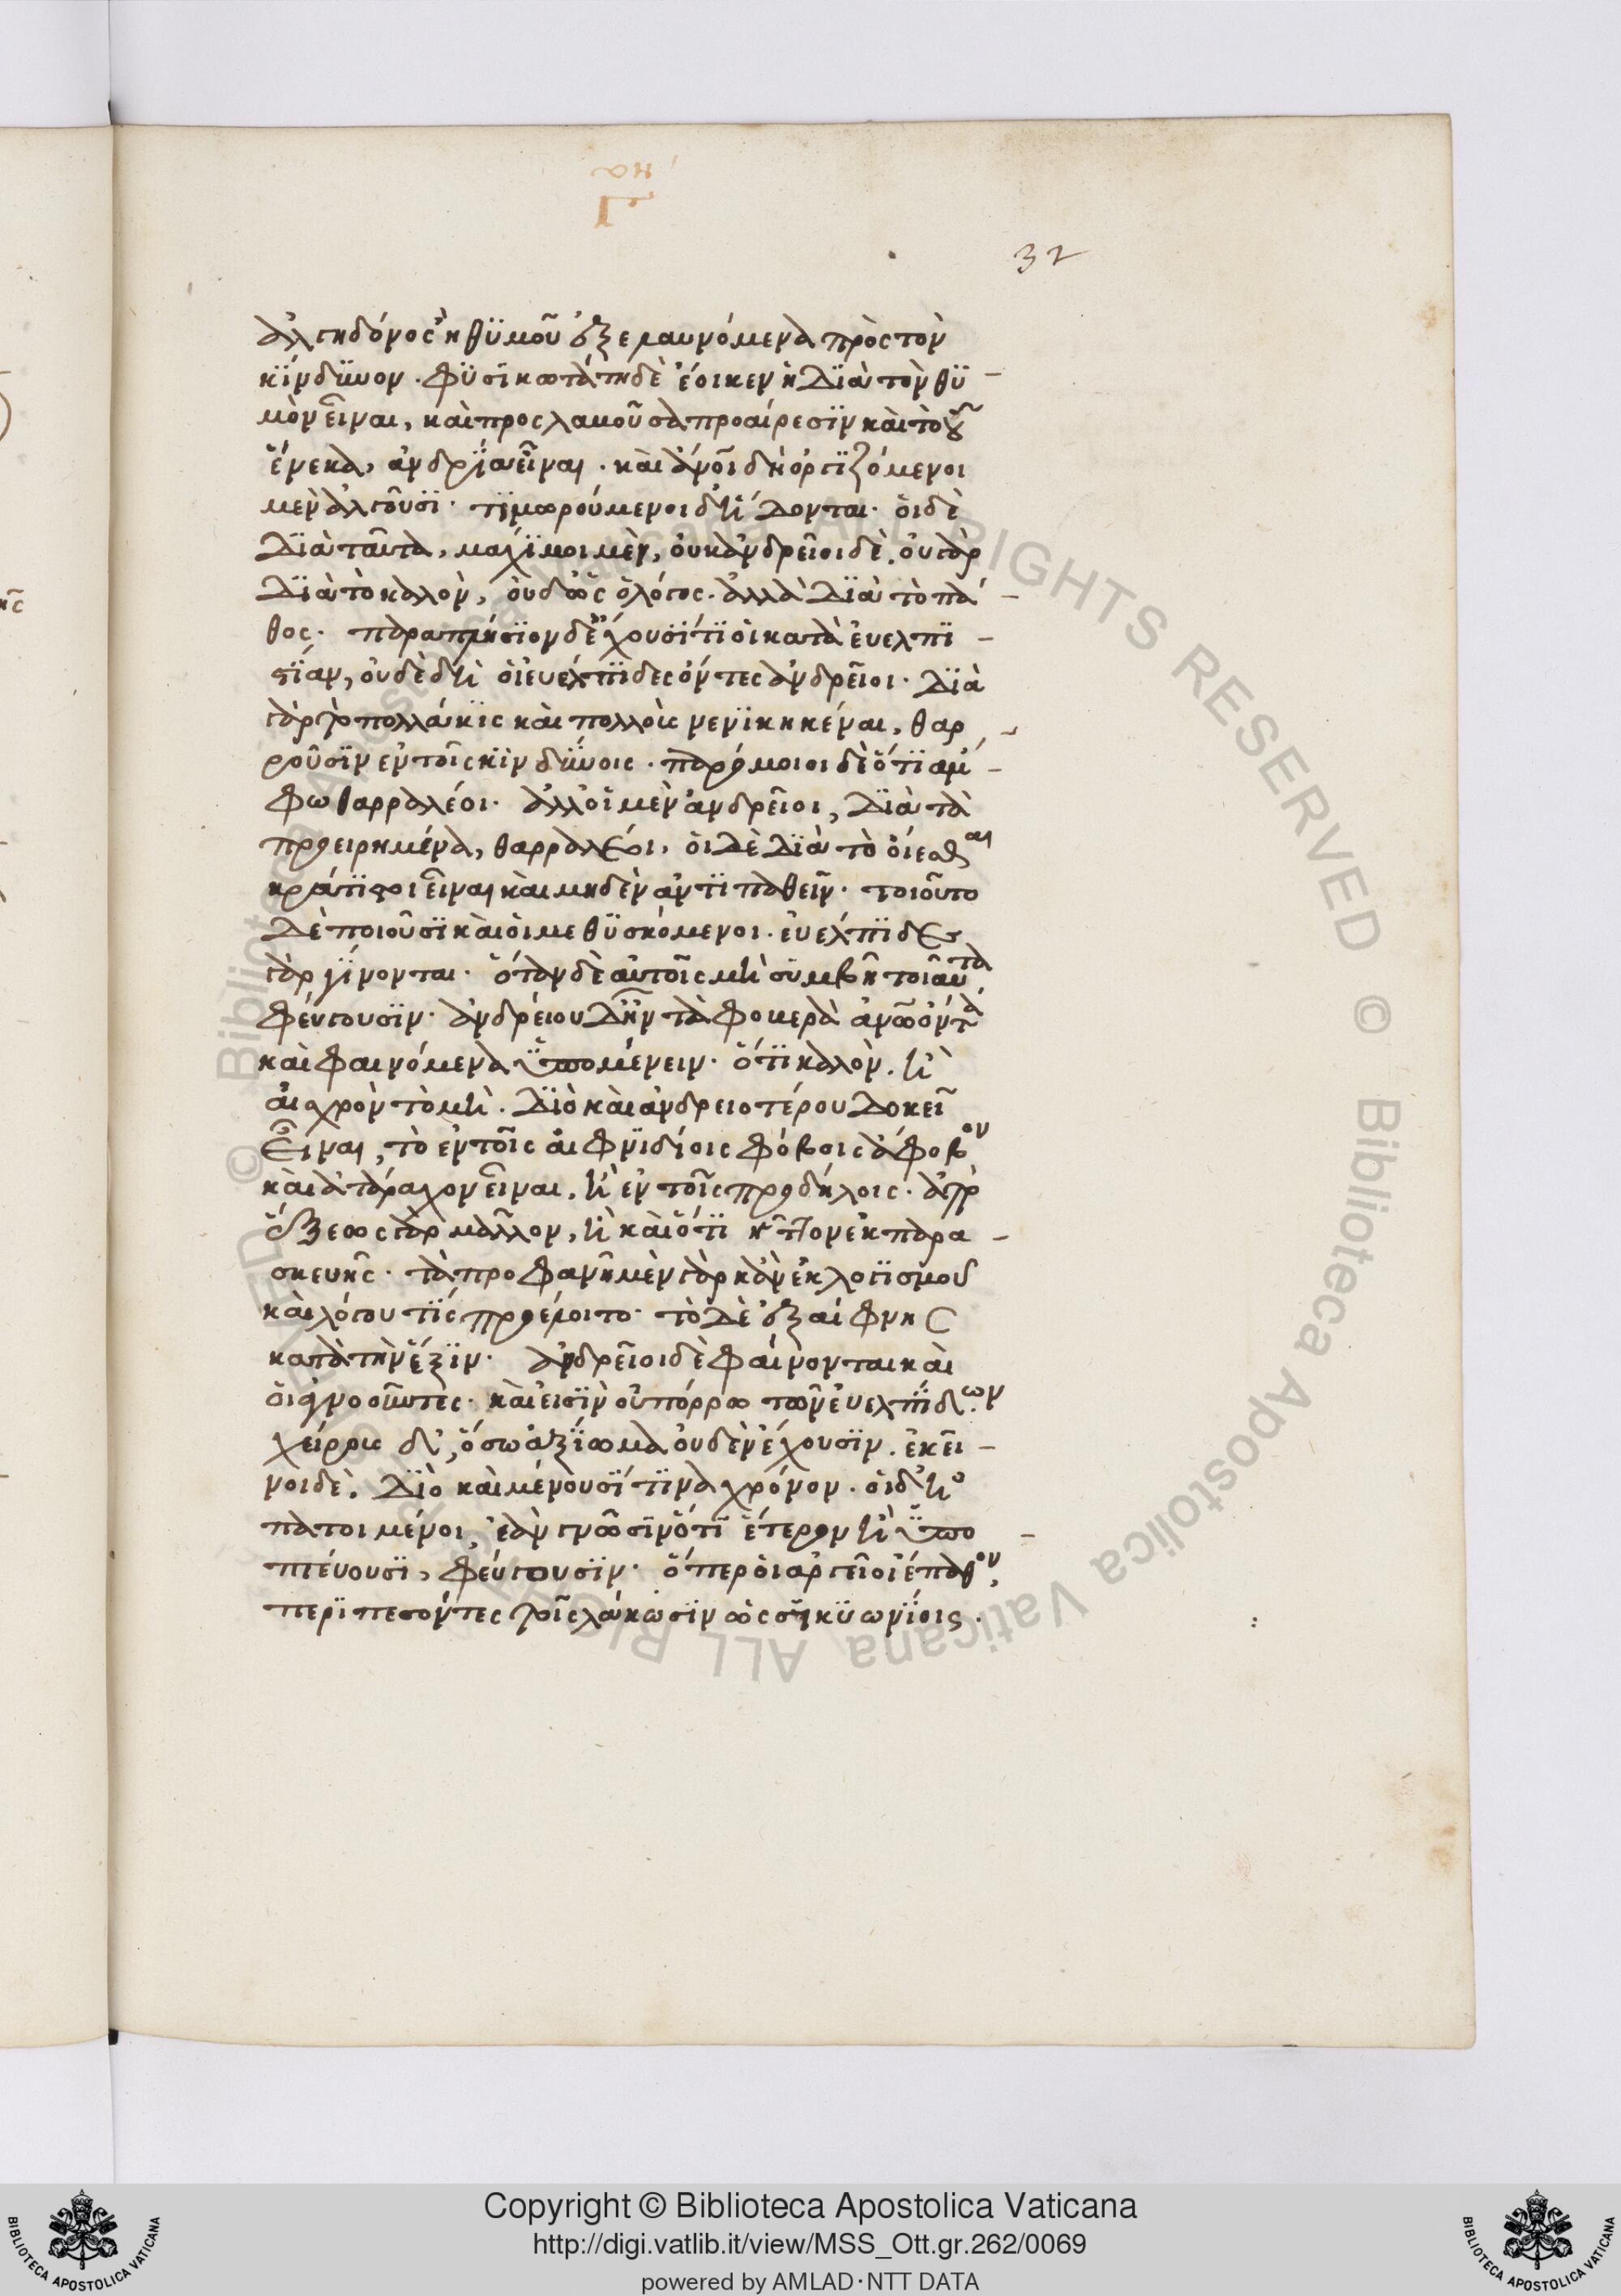 32
ἀλγηδόνος ἢ θϋμοῦ ἐξελαυνόμενα πρὸς τὸν
κίνδϋνον. φϋσϊκωτάτη δὲ ἔοικεν ἡ διὰ τὸν θϋ-
μὸν εἶναι, καὶ προσλαβοῦσα προαίρεσϊν καὶ τὸ οὗ
ἕνεκα, ἀνδρία εἶναι. καὶ ἄνοι δὴ ὀργϊζόμενοι
μὲν ἀλγοῦσϊ· τϊμωρούμενοι δ' ἥδονται· οἱ δὲ
διὰ ταῦτα, μαχϊμοι μὲν, οὐκ ἀνδρεῖοι δέ. οὐ γὰρ
διὰ τὸ καλὸν, οὐδ' ὡς ὁ λόγος. ἀλλὰ διὰ τὸ πά-
θος. παραπλήσϊον δ' ἔχουσϊ τϊ οἱ κατὰ εὐελπϊ-
στίαν, οὐδὲ δὴ οἱ εὐέλπϊδες ὄντες ἀνδρεῖοι. διὰ
γὰρ τὸ πολλάκϊς καὶ πολλοὺς νενϊκηκέναι, θαρ-
ροῦσϊν ἐν τοῖς κϊνδϋνοις. παρόμοιοι δὲ ὅτϊ ἀμ-
φω θαρραλέοι. ἀλλ' οἱ μὲν ἀνδρεῖοι, διὰ τὰ
προειρημένα, θαρραλέοι. οἱ δὲ διὰ τὸ οἴεσθαι
κράτϊστοι εἶναι καὶ μηδὲν ἀντϊπαθεῖν. τοιοῦτο
δὲ ποιοῦσϊ καὶ οἱ μεθϋσκόμενοι. εὐέλπϊδες
γὰρ γϊνονται. ὅταν δὲ αὐτοῖς μὴ σϋμβῆ τοιαῦτα
φεύγουσϊν. ἀνδρείου δ' ἦν τὰ φοβερὰ ἀνω ὄντα
καὶ φαινόμενα ϋπομένειν. ὅτϊ καλὸν. ἢ
αἰσχρὸν τὸ μὴ. διὸ καὶ ἀνδρειοτέρου δοκεῖ
εἶναι, τὸ ἐν τοῖς αἰφνϊδίοις φόβοις ἄφοβον
καὶ ἀτάραχον εἶναι, ἢ ἐν τοῖς προδήλοις. ἀπὸ
ἕξεως γὰρ μᾶλλον, ἢ καὶ ὅτϊ ἧττον ἐκ παρα-
σκευῆς. τὰ προφανῆ μὲν γὰρ κἂν ἐκ λογϊσμοῦ
καὶ λόγου τϊς προέλοιτο. τὸ δὲ ἐξαίφνης
κατὰ τὴν ἕξϊν. ἀνδρεῖοι δὲ φαίνονται καὶ
οἱ ἀγνοοῦντες. καὶ εἰσϊν οὐ πόρρω τῶν εὐελπϊδων
χείρους δ', ὅσω ἀξϊωμα οὐδὲν ἔχουσϊν. ἐκεῖ-
νοι δέ. διὸ καὶ μένουσϊ τϊνα χρόνον. οἱ δ' ἠ
πατημένοι, ἐὰν γνῶσϊν ὅτϊ ἕτερον ἢ ϋπο-
πτεύουσϊ, φεύγουσϊν. ὅπερ οἱ ἀργεῖοι ἔπαθον,
περϊπεσόντες τοῖς λάκωσϊν ὡς σϊκϋωνϊοις.
© Biblioteca Apostolica Vaticana ALL RIGHTS RESERVED © Biblioteca Apostolica Vaticana ALL RIGHTS RESERVED
BIBLIOTECA APOSTOLICA VATICANA
Copyright © Biblioteca Apostolica Vaticana
http://digi.vatlib.it/view/MSS_Ott.gr.262/0069
powered by AMLAD·NTT DATA
BIBLIOTECA APOSTOLICA VATICANA